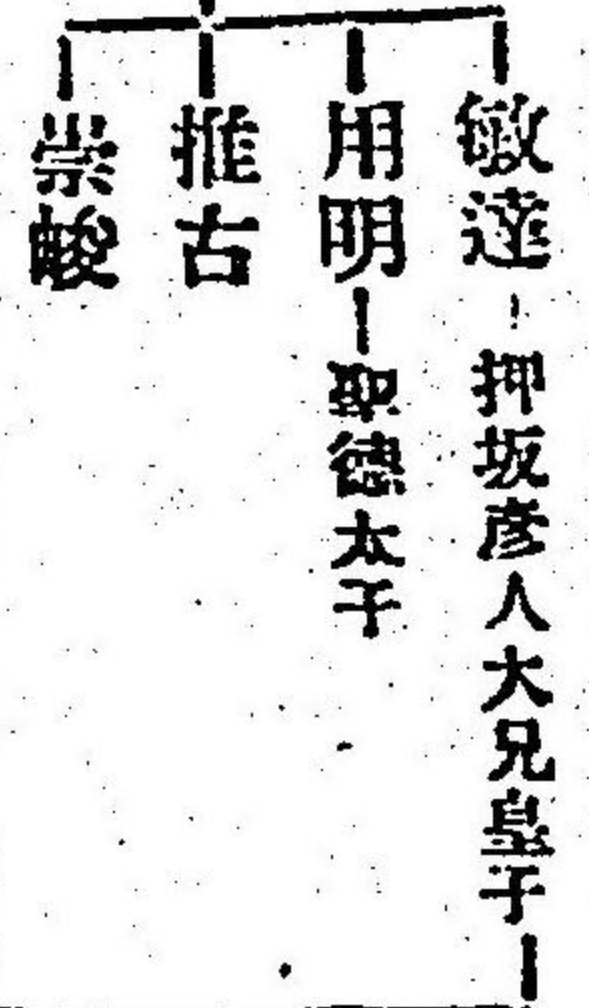 敏達―押坂彦人大兄皇子―
用明―聖德太子
推古
崇峻